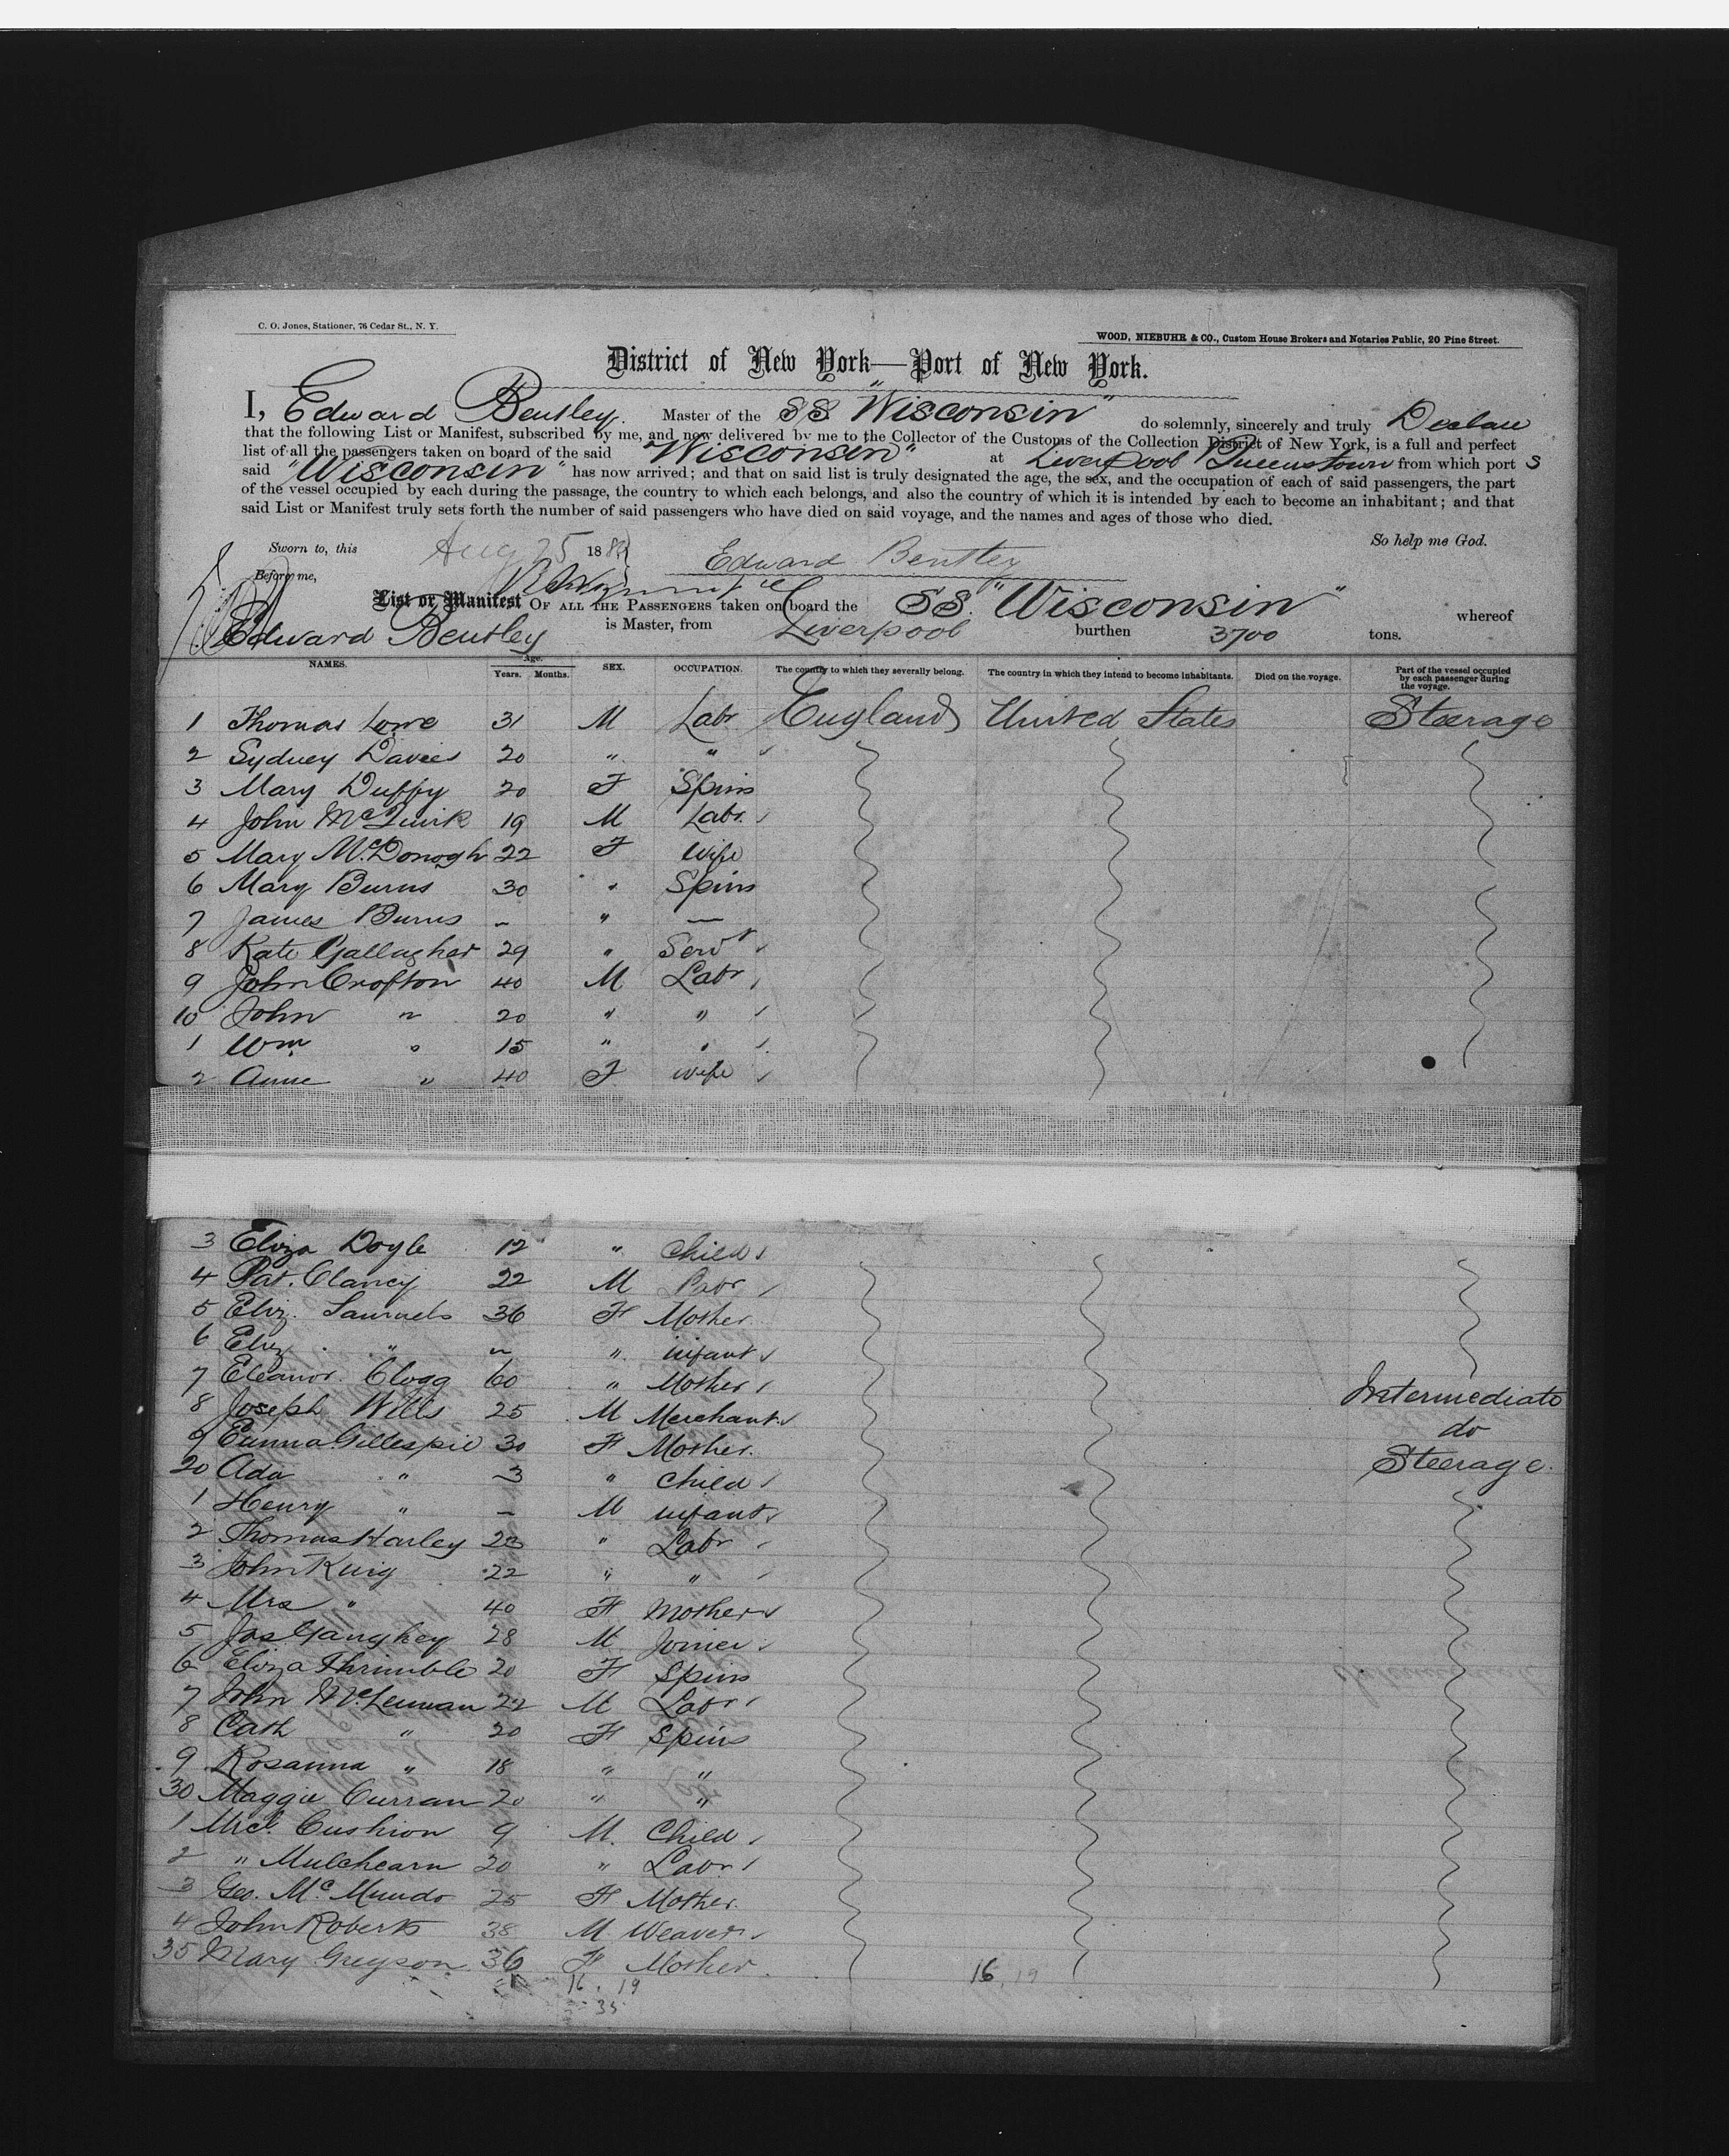 C. O. Jones, Stationer, 76 Cedar St., N. Y.
WOOD, NIEBUHR & CO., Custom House Brokers and Notaries Public, 20 Pine Street.
District of New York—Port of New York.
I, Edward Bentley. Master of the SS "Wisconsin" do solemnly, sincerely and truly Declare
that the following List or Manifest, subscribed by me, and now delivered by me to the Collector of the Customs of the Collection District of New York, is a full and perfect
list of all the passengers taken on board of the said "Wisconsin" at Liverpool Queenstown from which port s
said "Wisconsin" has now arrived; and that on said list is truly designated the age, the sex, and the occupation of each of said passengers, the part
of the vessel occupied by each during the passage, the country to which each belongs, and also the country of which it is intended by each to become an inhabitant; and that
said List or Manifest truly sets forth the number of said passengers who have died on said voyage, and the names and ages of those who died.
So help me God.
Sworn to, this Aug 25 188
Edward Bentley
Before me,
List or Manifest OF ALL THE PASSENGERS taken on board the SS. "Wisconsin" whereof
Edward Bentley is Master, from Liverpool burthen 3700 tons.
NAMES. Age. Years. Months. SEX. OCCUPATION. The country to which they severally belong. The country in which they intend to become inhabitants. Died on the voyage. Part of the vessel occupied by each passenger during the voyage.
1 Thomas Lowe 31 M Labr England United States Steerage
2 Sydney Davies 20 " "
3 Mary Duffy 20 F Spins
4 John McQuirk 19 M Labr.
5 Mary McDonogh 22 F Wife
6 Mary Burns 30 " Spins
7 James Burns - " —
8 Kate Gallagher 29 " Servt
9 John Crofton 40 M Labr
10 John " 20 " "
1 Wm " 15 " "
2 Anne " 40 F Wife
3 Eliza Doyle 12 " Child
4 Pat. Clancy 22 M Labr
5 Eliz. Samuels 36 F Mother
6 Eliz " - " infant
7 Eleanor Clogg 60 " Mother Intermediate
8 Joseph Wills 25 M Merchant do
9 Emma Gillespie 30 F Mother. Steerage.
20 Ada " 3 " Child
1 Henry " — M infant
2 Thomas Harley 23 " Labr
3 John King 22 " "
4 Mrs " 40 F Mother
5 Jas Gaughey 28 M Joiner
6 Eliza Thrimble 20 F Spins
7 John McLennan 22 M Labr
8 Cath " 20 F Spins
9 Rosanna " 18 " "
30 Maggie Curran 20 " "
1 Micl. Cushion 9 M. Child
2 " Mulchearn 20 " Labr
3 Geo. Mc Mundo 25 F Mother.
4 John Roberts 38 M Weaver
35 Mary Greyson 36 F Mother.
16. 19 16, 19
35